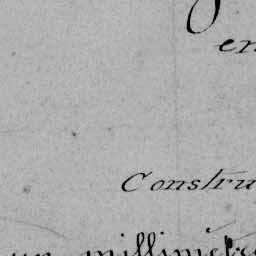 en
Constru
un millimètre